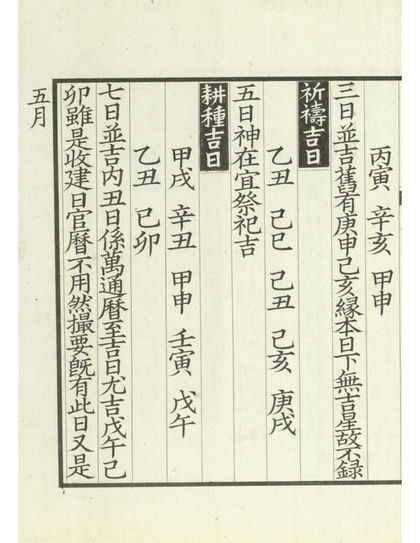 丙寅 辛亥 甲申
三日並吉舊有庚申己亥緣本日下無吉星故不錄
祈禱吉日
乙丑 己巳 己丑 己亥 庚戌
五日神在宜祭祀吉
耕種吉日
甲戌 辛丑 甲申 壬寅 戊午
乙丑 己卯
七日並吉內丑日係萬通曆至吉日尤吉戊午己
卯雖是收建日官曆不用然撮要既有此日又是
五月